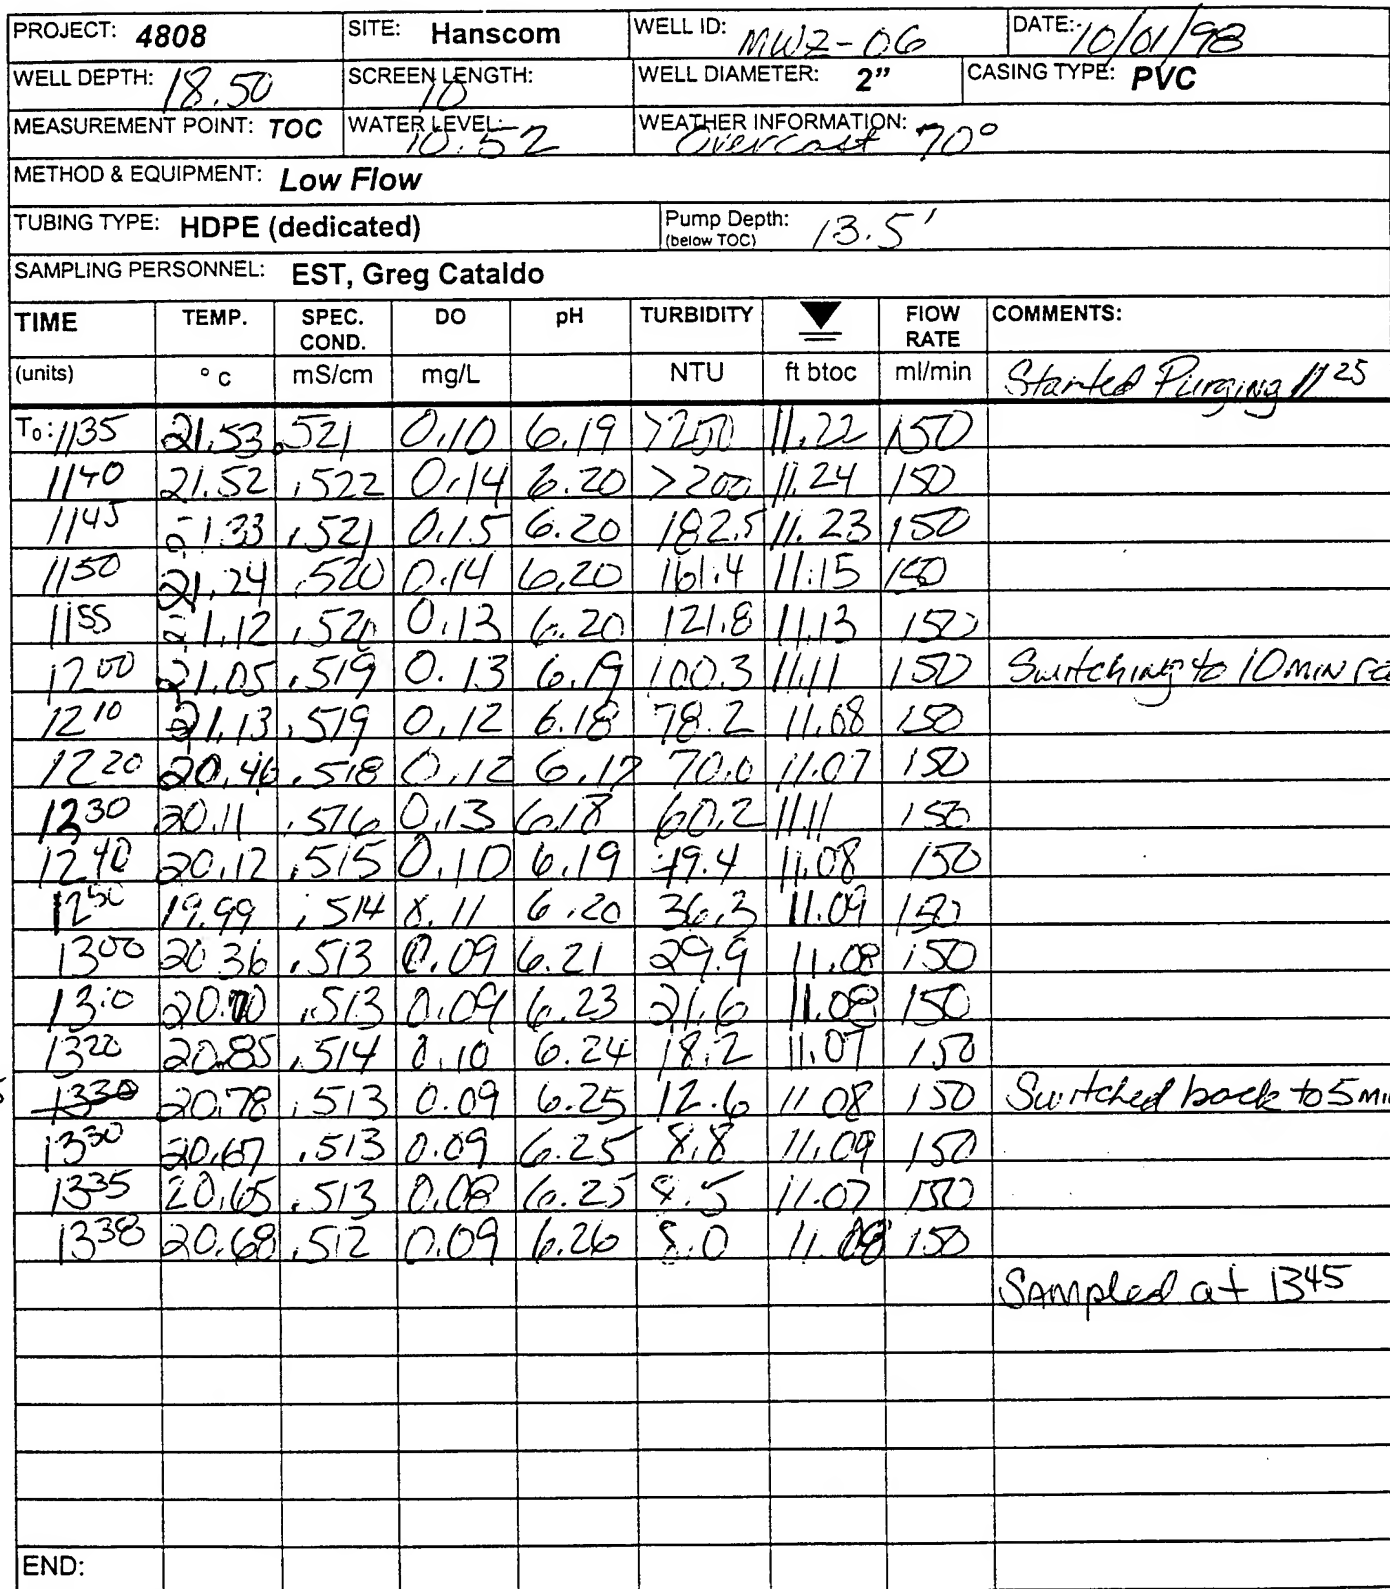 PROJECT: 4808 SITE: Hanscom WELL ID: MWZ-06 DATE: 10/01/98
WELL DEPTH: 18.50 SCREEN LENGTH: 10 WELL DIAMETER: 2" CASING TYPE: PVC
MEASUREMENT POINT: TOC WATER LEVEL: 10.52 WEATHER INFORMATION: Overcast 70°
METHOD & EQUIPMENT: Low Flow
TUBING TYPE: HDPE (dedicated) Pump Depth: (below TOC) 13.5'
SAMPLING PERSONNEL: EST, Greg Cataldo
TIME TEMP. SPEC. COND. DO pH TURBIDITY FlOW RATE COMMENTS:
(units) °C mS/cm mg/L NTU ft btoc ml/min Started Purging 1125
To: 1135 21.53 .521 0.10 6.19 11.22 150
1140 21.52 .522 0.14 6.20 >200 11.24 150
1145 21.33 .521 0.15 6.20 182.5 11.23 150
1150 21.24 .520 0.14 6.20 161.4 11.15 150
1155 21.12 .520 0.13 6.20 121.8 11.13 150
1200 21.05 .519 0.13 6.19 100.3 11.11 150 Switching to 10 MIN
1210 21.13 .519 0.12 6.18 78.2 11.08 150
1220 20.46 .518 0.12 6.17 70.0 11.07 150
1230 20.11 .516 0.13 6.18 60.2 11.11 150
1240 20.12 .515 0.10 6.19 49.4 11.08 150
1250 19.99 .514 0.11 6.20 36.3 11.09 150
1300 20.36 .513 0.09 6.21 29.9 11.08 150
1310 20.70 .513 0.09 6.23 21.6 11.08 150
1320 20.85 .514 0.10 6.24 18.2 11.07 150
1330 20.78 .513 0.09 6.25 12.6 11.08 150 Switched back to 5 Min
1330 20.67 .513 0.09 6.25 8.8 11.09 150
1335 20.65 .513 0.08 6.25 8.5 11.07 150
1338 20.68 .512 0.09 6.26 8.0 11.08 150
Sampled at 1345
END: